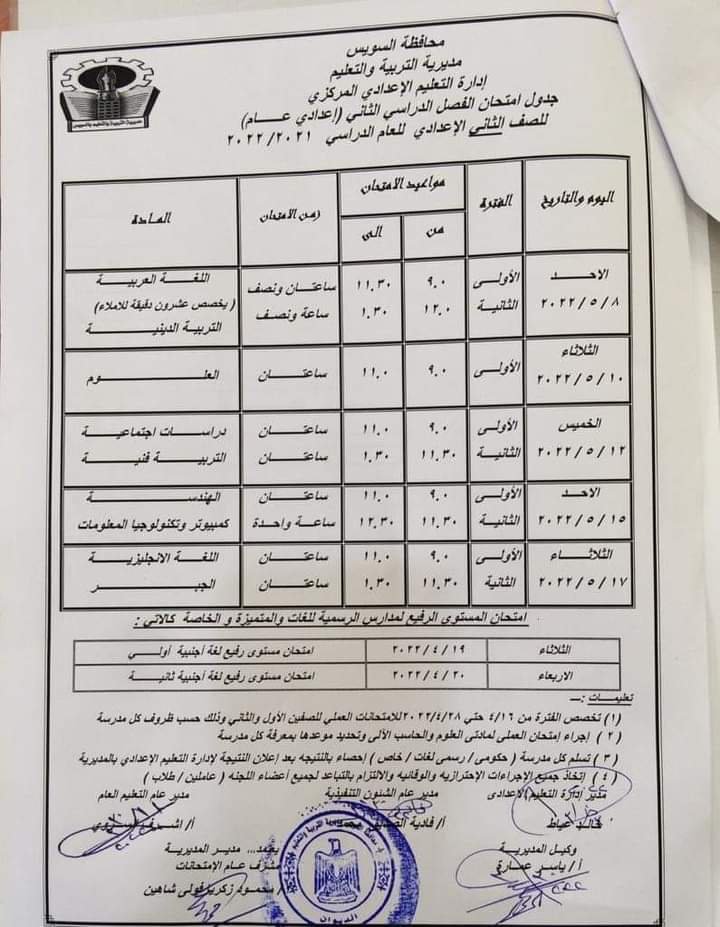 محافظة السويس
مديرية التربية والتعليم
إدارة التعليم الإعدادي المركزي
جدول امتحان الفصل الدراسي الثاني (إعدادي عـــام)
للصف الثاني الإعدادي للعام الدراسي ٢٠٢٢/٢٠٢١
مديرية التربية والتعليم بالسويس
اليوم والتاريخ الفترة مواعيد الأمتحان زمن الأمتحان المـــادة
من الى
الاحد الأولى ٩.٠ ١١.٣٠ ساعتـــان ونصف اللغـــة العربيـــة
(يخصص عشرون دقيقة للاملاء)
٢٠٢٢/٥/٨ الثانية ١٢.٠ ١.٣٠ ساعة ونصف التربية الدينيـــة
الثلاثاء
٢٠٢٢/٥/١٠ الأولى ٩.٠ ١١.٠ ساعتـــان العلـــوم
الخميس الأولى ٩.٠ ١١.٠ ساعتـــان دراســـات اجتماعيـــة
٢٠٢٢/٥/١٢ الثانية ١١.٣٠ ١.٣٠ ساعتـــان التربيـــة فنيـــة
الاحد الأولى ٩.٠ ١١.٠ ساعتـــان الهندســـة
٢٠٢٢/٥/١٥ الثانية ١١.٣٠ ١٢.٣٠ ساعـــة واحدة كمبيوتر وتكنولوجيا المعلومات
الثلاثـــاء الأولى ٩.٠ ١١.٠ ساعتـــان اللغـــة الانجليزيـــة
٢٠٢٢/٥/١٧ الثانية ١١.٣٠ ١.٣٠ ساعتـــان الجبـــر
امتحان المستوى الرفيع لمدارس الرسمية للغات والمتميزة و الخاصة كالاتي :
الثلاثاء ٢٠٢٢/٤/١٩ امتحان مستوى رفيع لغة أجنبية أولي
الاربعاء ٢٠٢٢/٤/٢٠ امتحان مستوى رفيع لغة أجنبية ثانيـــة
تعليمـــات :—
(١) تخصص الفترة من ٤/١٦ حتى ٢٠٢٢/٤/٢٨ للامتحانات العملي للصفين الأول والثاني وذلك حسب ظروف كل مدرسة
(٢) إجراء إمتحان العملى لمادتى العلوم والحاسب الألى وتحديد موعدها بمعرفة كل مدرسة
(٣) تسلم كل مدرسة (حكومى / رسمى لغات / خاص) إحصاء بالنتيجه بعد إعلان النتيجة لإدارة التعليم الإعدادي بالمديرية
(٤) إتخاذ جميع الإجراءات الإحترازيه والوقائيه والالتزام بالتباعد لجميع أعضاء اللجنه (عاملين / طلاب)
مدير إدارة التعليم الإعدادى مدير عام الشئون التنفيذية مدير عام التعليم العام
خالد عياط أ/ فادية أ/
وكيل المديرية يعتمد... مديـر المديرية
أ / ياسر عمارة مشرف عـام الإمتحانات
/ محمود زكريا فولى شاهين
الديوان